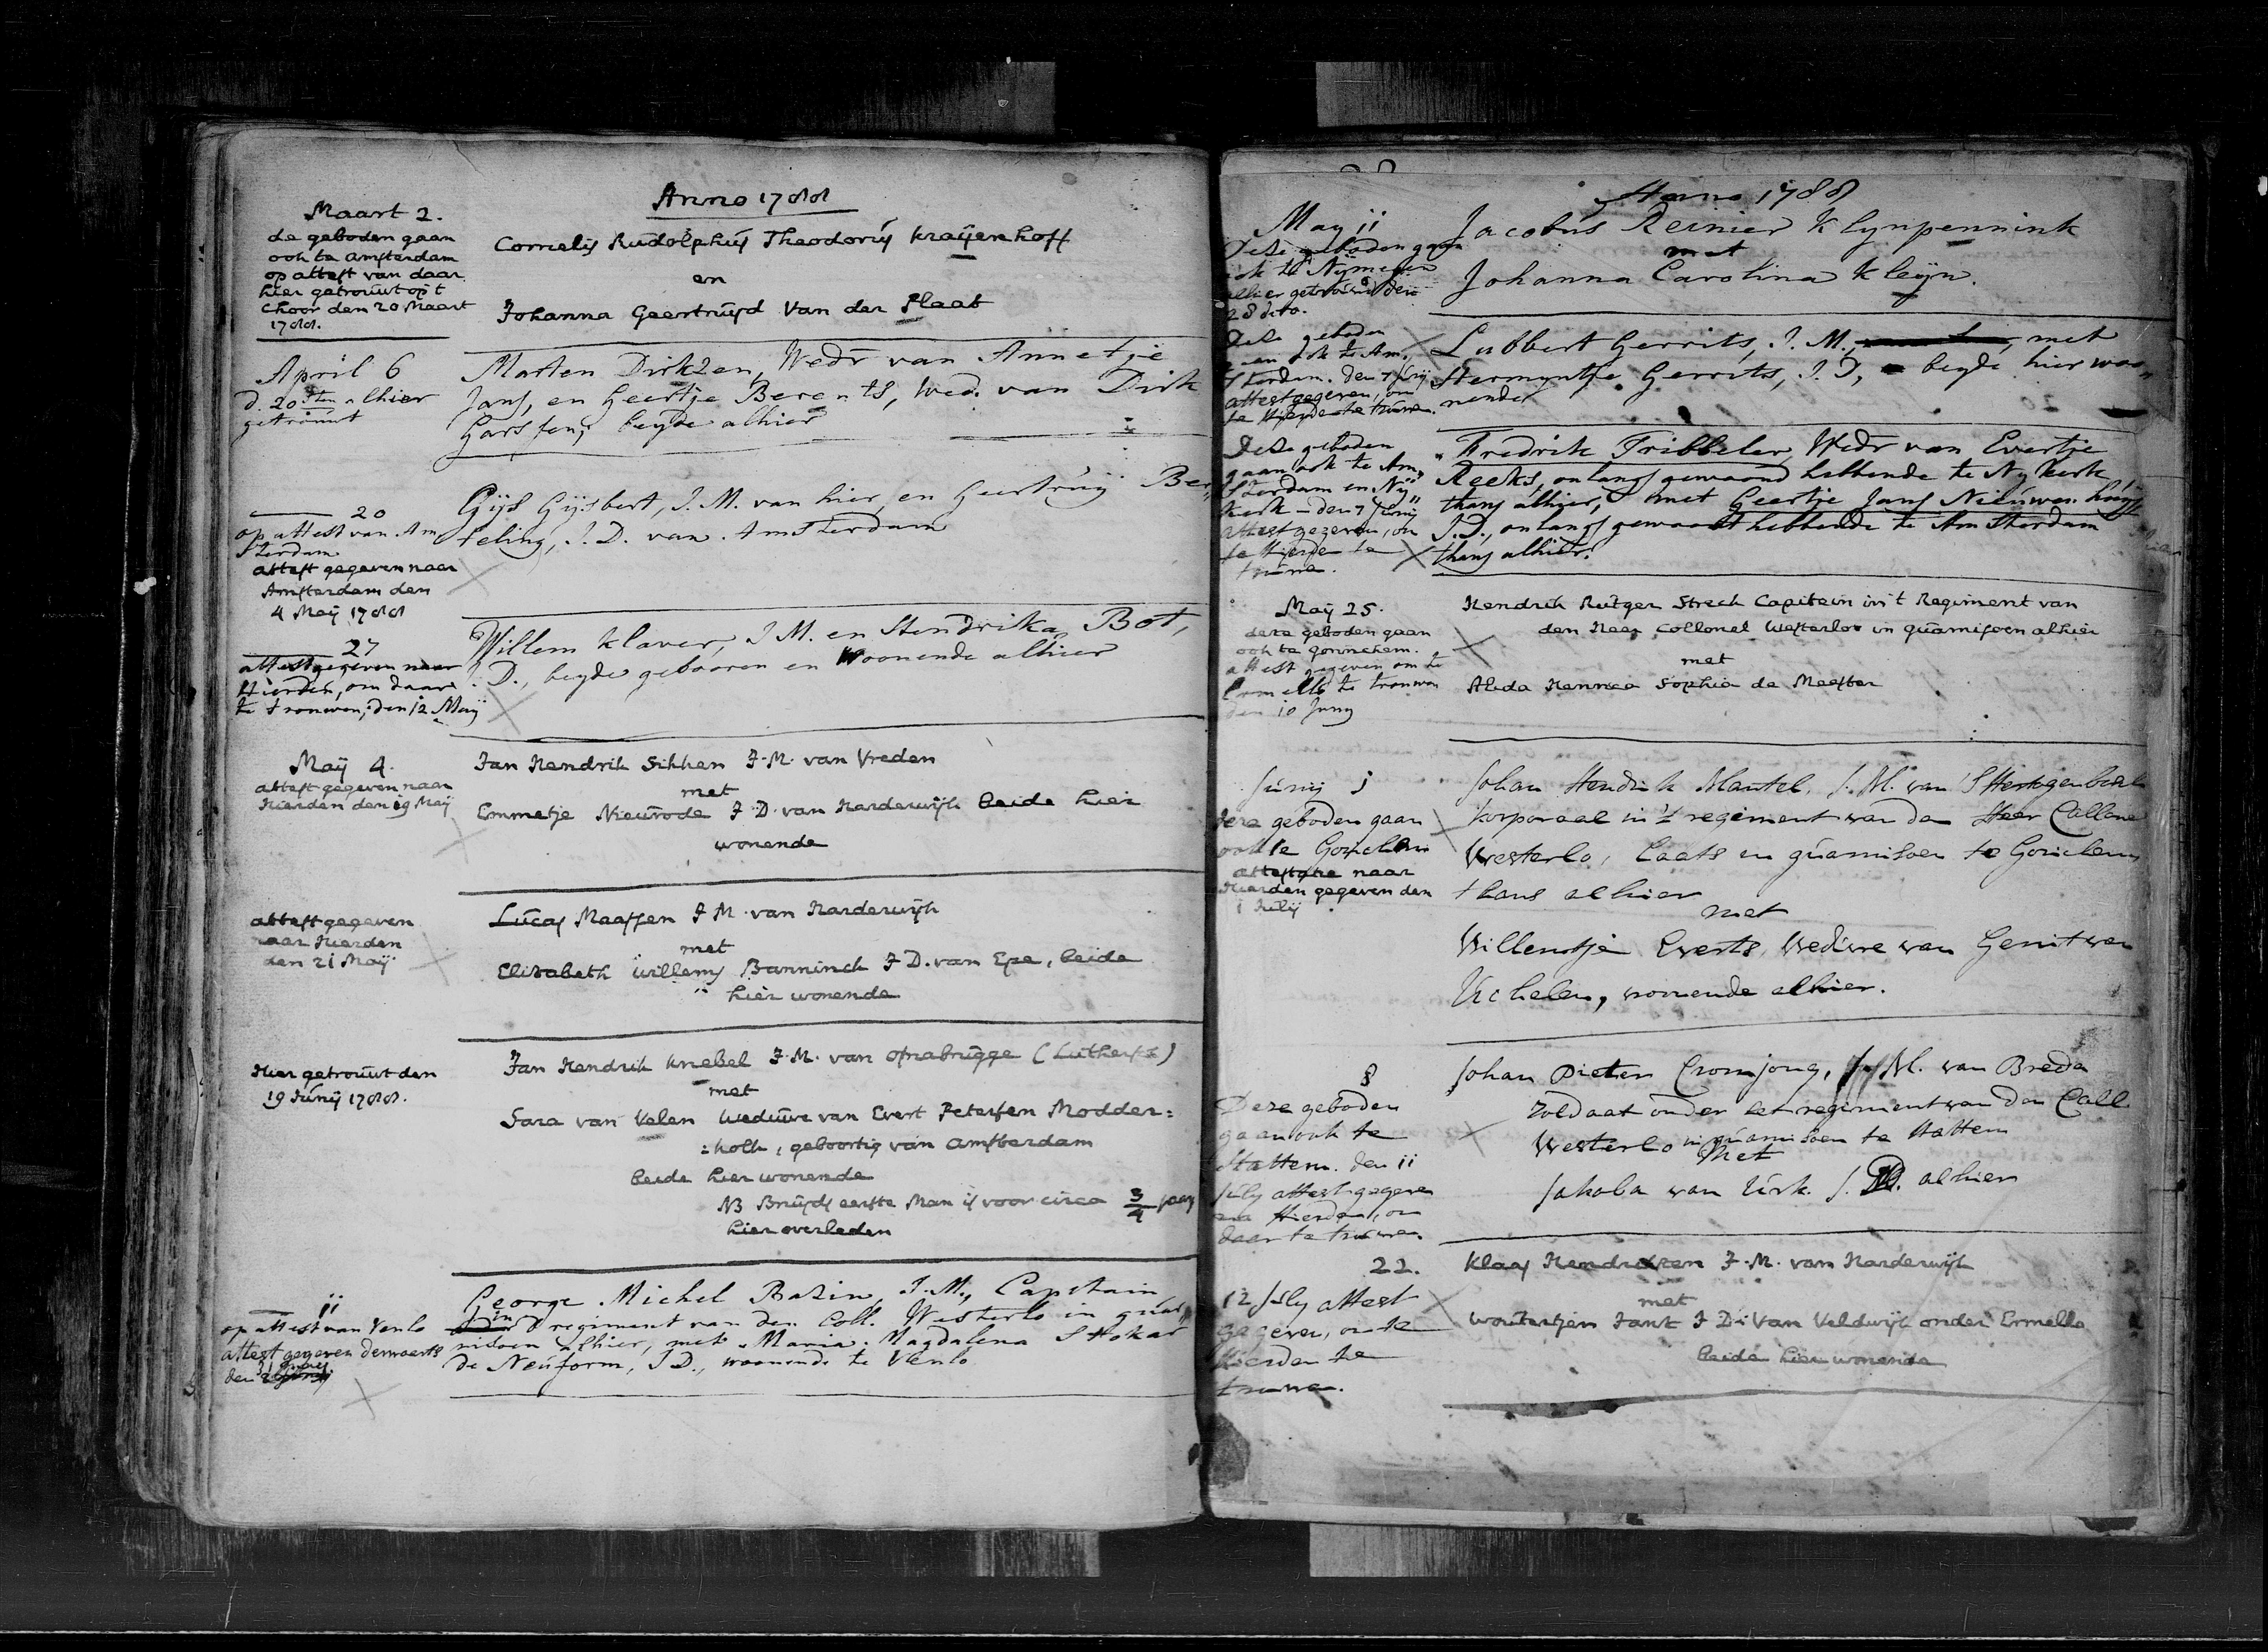 Anno 1788
Maart 2.
de geboden gaan
ook te Amsterdam
op attest van daar
hier getrouwt op't
Choor den 20 Maart
1788.
Cornelis Rudolphus Theodorus Kraijenhoff
en
Johanna Geertruyd Van der Plaat
April 6
d. 20sten alhier
getrouwt
Marten Dirkzen, Wedr van Annetje
Jans, en Geertje Berents, Wed. van Dirk
Garssen, beyde alhier
20
op attest van Am
sterdam
attest gegeven naar
Amsterdam den
4 Maij 1788
Gijs Gijsbert, J. M. van hier, en Geertruij Ber,,
teling, J. D. van Amsterdam
27
attest gegeven naar
Hierden, om daar
te trouwen, den 12 Maij
Willem Klaver, J M. en Hendrika Bot,
J. D., beyde gebooren en woonende alhier
Maij 4.
attest gegeven naar
Hierden den 19 Maij
Jan Hendrik Sikken J. M. van Vreden
met
Emmetje Nieurode J. D. van Harderwijk beide hier
wonende
attest gegeven
naar Hierden
den 21 Maij
Lucas Maassen J M. van Harderwijk
met
Elisabeth Willems Banninck J D. van Epe, beide
hier wonende
Hier getrouwt den
19 Junij 1788.
Jan Hendrik Knebel J. M. van Osnabrugge (Luthers)
met
Sara van Velen Weduwe van Evert Petersen Modder=
=kolk, geboortig van Amsterdam
beide hier wonende
NB Bruyds eerste Man is voor circa 3/4 jaar
hier overleden
11
op attest van Venlo
attest gegeven derwaerts
den
George Michel Bazin, J. M., Capitain
in regiment van den Coll. Westerlo in guar,,
nisoen alhier, met Maria Magdalena Stokar
de Neuform, J D., woonende te Venlo
Anno 1788
May 11
Dese geboden gaan
ook te Nijmegen
alhier getrouwd den
28 dito.
Jacobus Reinier Klynpennink
met
Johanna Carolina Kleijn.
Dese geboden
gaan ook te Am,,
sterdam. den 7 Junij
attest gegeven, om
te Hierden te trouwen.
Lubbert Gerrits, J. M., met
Hermyntje Gerrits, J. D, beyde hier woo,,
nende
Dese geboden
gaan ook te Am,,
sterdam en Nij,,
kerk - den 7 Junij
attest gegeven, om
te Hierden te
trouwen.
Fredrik Fribbeler, Wedr van Evertje
Reeks, onlangs gewoond hebbende te Nykerk
thans alhier, met Geertje Jans Nieuwenhuys
J. D., onlangs gewoont hebbende te Amsterdam
thans alhier.
Maij 25.
deze geboden gaan
ook te Gorinchem.
attest gegeven om te
Ermello te trouwen
den 10 Juny
Hendrik Rutger Streck Capitein in't Regiment van
den Heer Collonel Westerloo in guarnisoen alhier
met
Alida Henrica Sophia de Meester
Junij 1
deze geboden gaan
ook te Gorichem
attestatie naar
Hierden gegeven den
1 Julij
Johan Hendrik Mantel, J. M. van SHertogenbosch
Korporaal in 't regiment van den Heer Collone
Westerlo, laats in guarnisoen te Gorichem
thans alhier
met
Willemtje Everts, Weduwe van Gerrit van
Uchelen, wonende alhier.
8
Deze geboden
gaan ook te
Hattem. den 11
July attest gegeven
na Hierden, om
daar te trouwen.
Johan Pieter Cromjong, J. M. van Breda
zoldaat onder het regiment van den Coll
Westerlo in guarnisoen te Hattem
Met
Jakoba van Urk. J. D. alhier
22.
12 July attest
gegeven, om te
Hierden te
trouwen.
Klaas Hendriksen J. M. van Harderwijk
met
Woutertjen Jans J D. Van Veldwijk onder Ermello
beide hier wonende